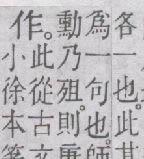 各一也。此
爲一句也。師
勳乃殂則
作。此從古文
小徐本